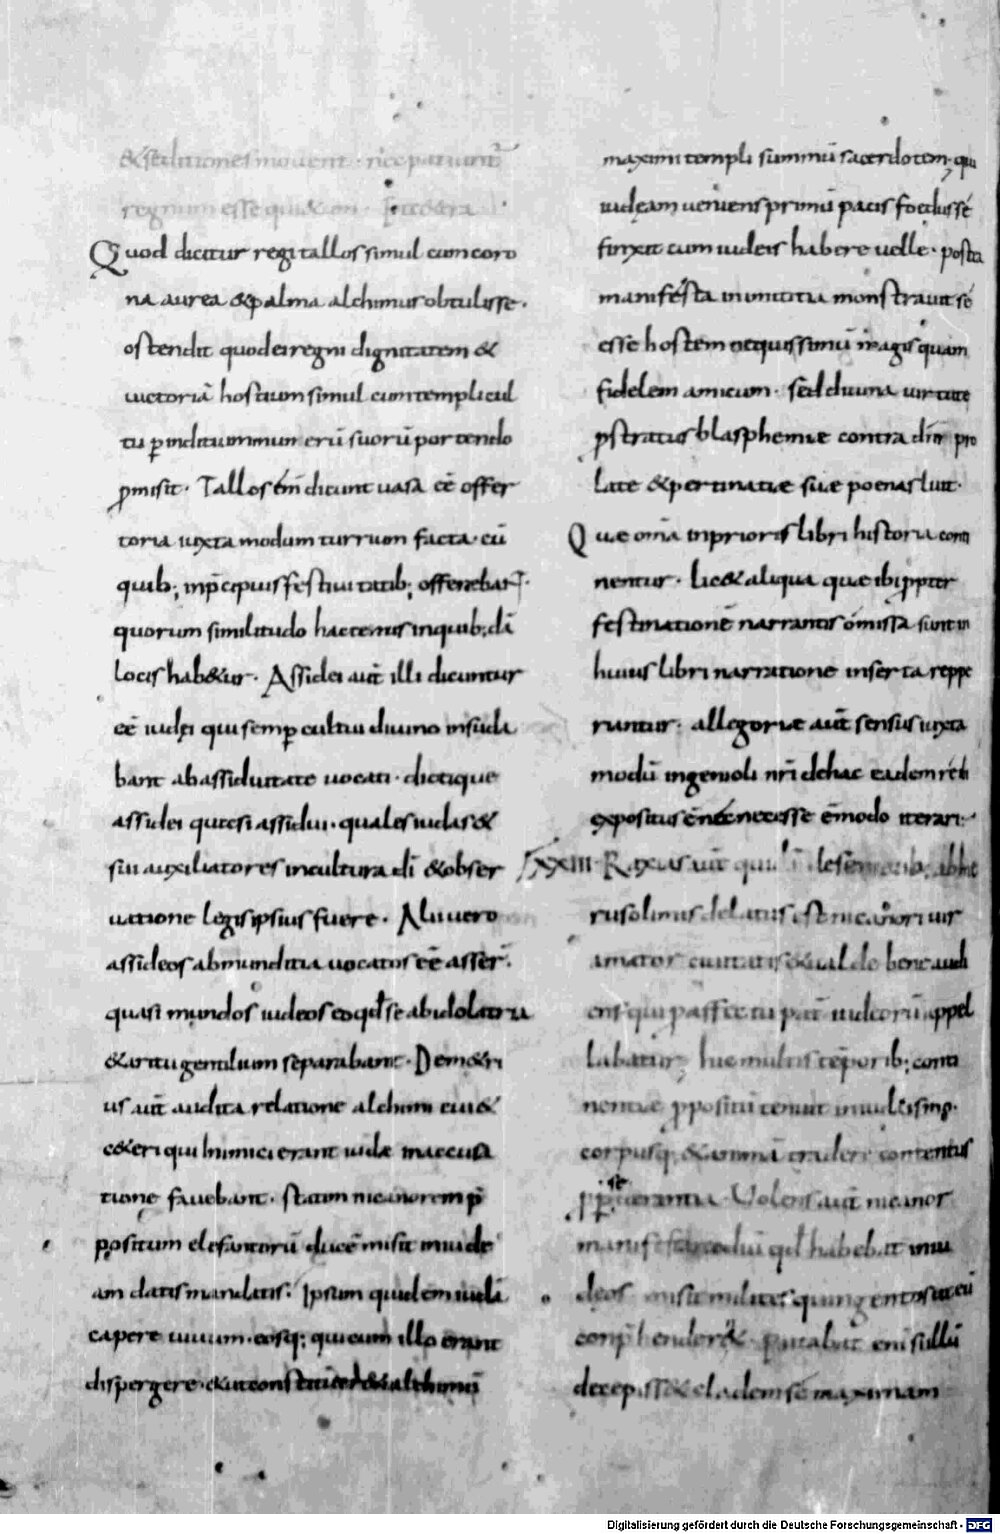 & seditiones mouent · nec patiunt̄
regnum esse qui&um · Et c&era
Quod dicitur regi tallos simul cum coro
na aurea & palma alchimus obtulisse ·
ostendit quod ei regni dignitatem &
uictoriā hostium simul cum templi cul
tu p̱
ꝓmisit · Tallos eīm dicunt uasa eē offer
toria iuxta modum turrium facta · cū
quib; in p̄cipuis festiuitatib; offerebat̄ ·
quorum similitudo hactenus in quib;dā
locis hab&ur · Assidei aūt illi dicuntur
eē iudęi qui semp̱ cultui diuino insuda
bant ab assiduitate uocati · dictique
assidei quasi assidui · quales iudas &
sui auxiliatores in cultura dī & obser
uatione legis ipsius fuere · Alii uero
assideos ab munditia uocatos eē asser̄ ·
quasi mundos iudeos eo qđ se ab idolatria
& a ritu gentilium separabant · Dem&ri
us aūt audita relatione alchimi eius &
c&eri qui inimici erant iudę in accusa
tione fauebant · statim nicanorem p̄
positum elefantorū ducē misit in iude
am datis mandatis · Ipsum quidem iudā
capere uiuum · eosq; qui cum illo erant
dispergere · & ut constitueret & alchimū
maximi templi summū sacerdotem · qui
iudęam ueniens primū pacis foedus se
finxit cum iudeis habere uelle · postea
manifesta inimicitia monstrauit sé
esse hostem nequissimū magis quam
fidelem amicum · sed diuina uirtute
ꝓstratus blasphemie contra dīm pro
late & pertinatie suę poenas luit ·
Que om̄ia in prioris libri historia conti
nentur · lic& aliqua que ibi ꝓpter
festinationē narrantis omissa sunt in
huius libri narratione inserta reppe
runtur · allegorie aūt sensus iuxta
modū ingenioli nr̄i de hac eadem re ibi
expositus ē nec necesse ē modo iterari ·
XXIII · Raxias aūt quidā de seniorib; ab hie
rusolimis delatus est nicanori uir
amator ciuitatis & ualde bene audi
ens · qui p̱ affectū pat̄ iudeorū appel
labatur · hic multis tēporib; conti
nentie ꝓpositū tenuit in iudaismo ·
corpusq; & animā tradere contentus
ꝓ p̱seuerantia · Uolens aūt nicanor
manifestare odiū qđ habebat in iu
deos misit milites quingentos ut eū
conp̄hender& · putabat enī si illū
decepiss& cladem se maximam